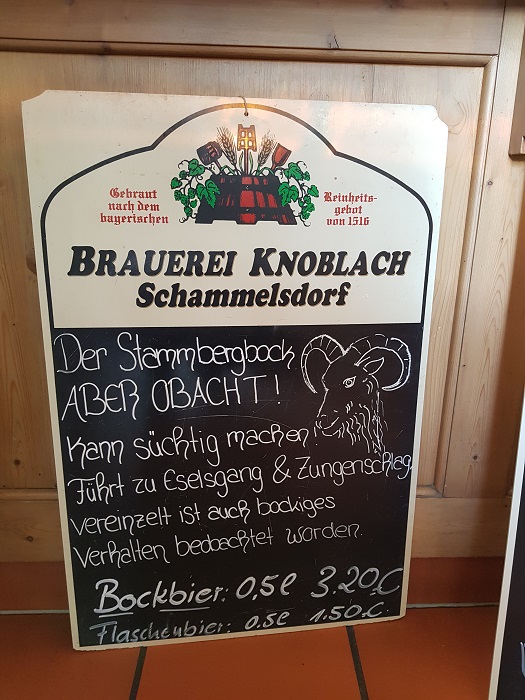 Gebraut
nach dem
bayerischen
Reinheits-
gebot
von 1516
BRAUEREI KNOBLACH
Schammelsdorf
Der Stammbergbock
ABER OBACHT!
Kann süchtig machen!
Führt zu Eselsgang & Zungenschlag
vereinzelt ist auch bockiges
Verhalten beobachtet worden.
Bockbier: 0,5l 3.20€
Flaschenbier: 0.5l 1.50€